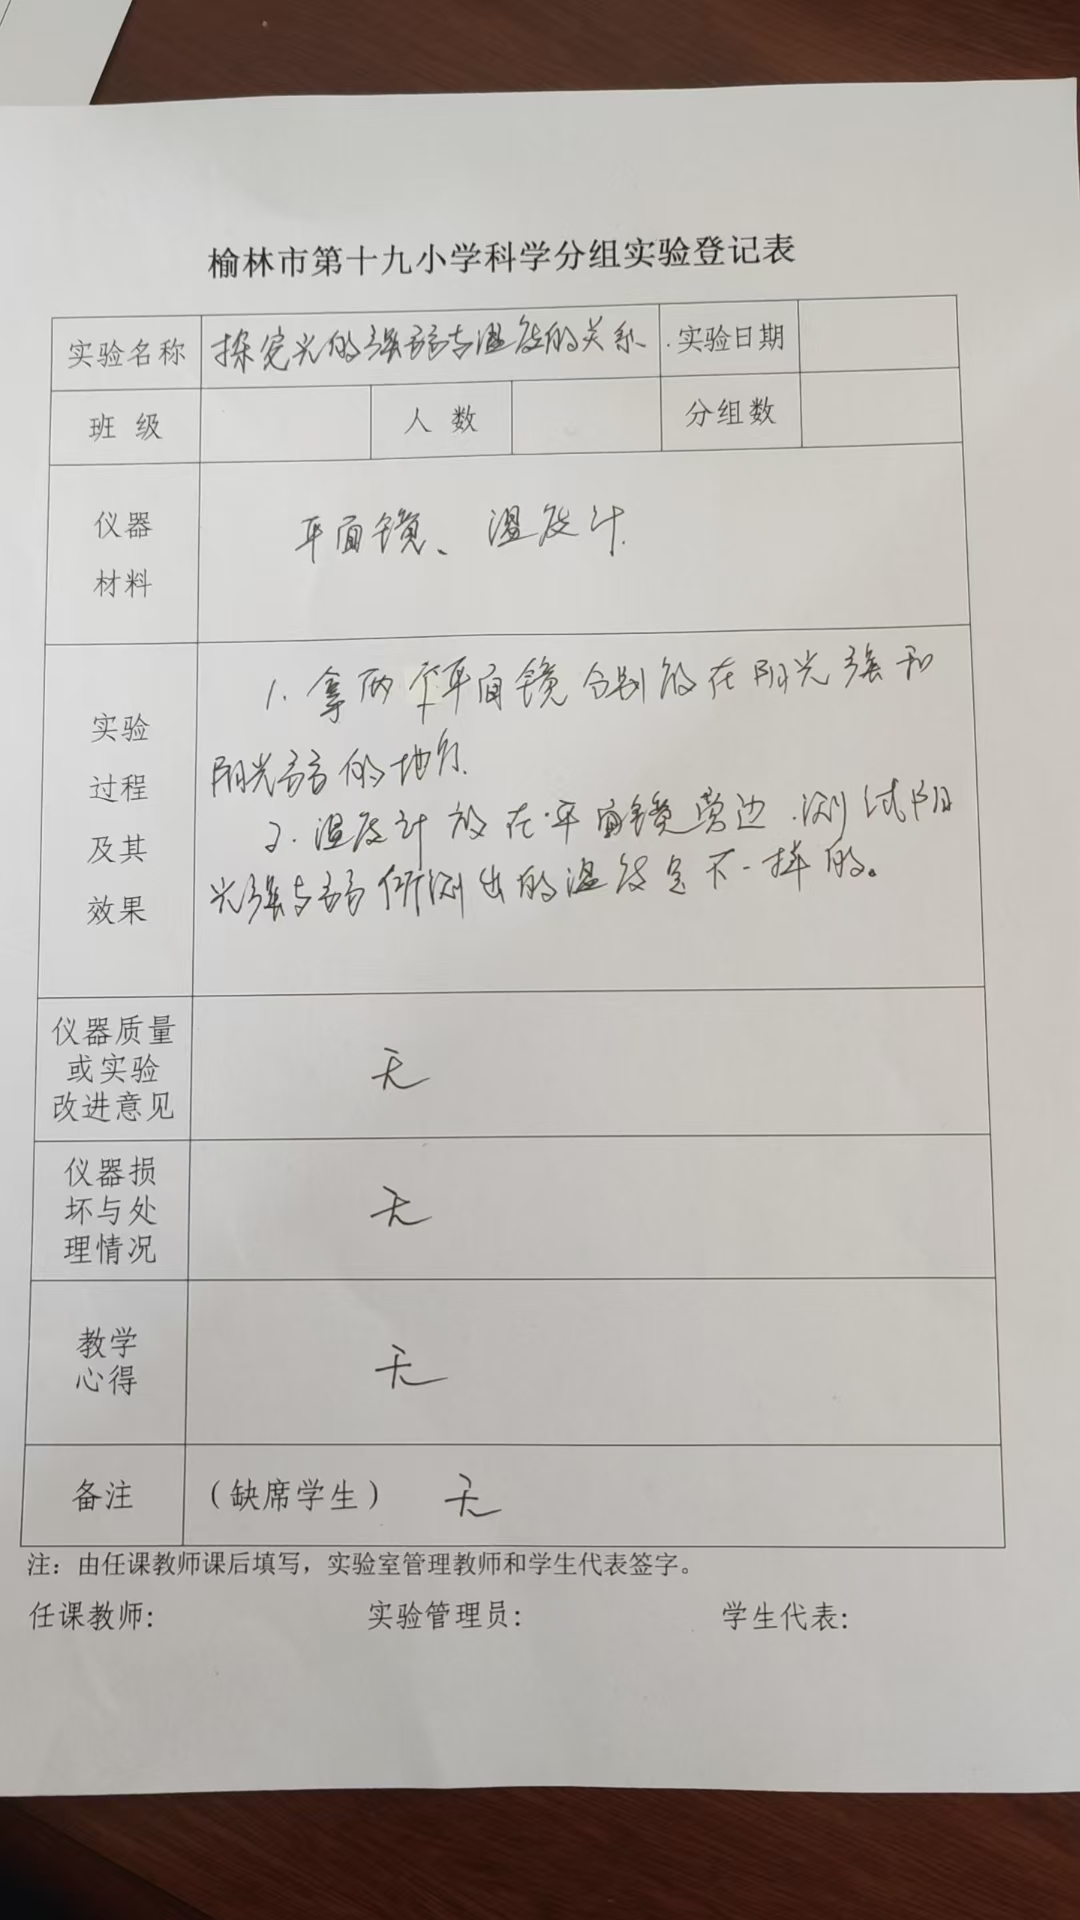 榆林市第十九小学科学分组实验登记表
实验名称 探究光的强弱与温度的关系 实验日期
班 级 人 数 分组数
仪器
材料
平面镜、温度计
实验
过程
及其
效果
1. 拿两个平面镜分别放在阳光强和
阳光弱的地方.
2. 温度计放在平面镜旁边.测试阳
光强与弱所测出的温度是不一样的。
仪器质量
或实验
改进意见
无
仪器损
坏与处
理情况
无
教学
心得
无
备注 （缺席学生） 无
注：由任课教师课后填写，实验室管理教师和学生代表签字。
任课教师: 实验管理员: 学生代表: